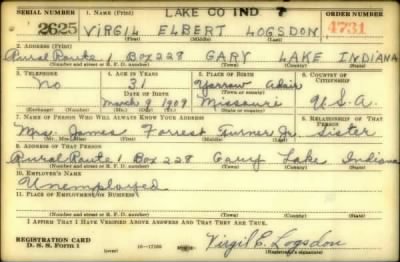 SERIAL NUMBER 1. NAME (Print) LAKE CO IND 7 ORDER NUMBER
2625 VIRGIL ELBERT LOGSDON 4731
(First) (Middle) (Last)
2. ADDRESS (Print)
Rural Route 1 Box 228 GARY LAKE INDIANA
(Number and street or R. F. D. number) (Town) (County) (State)
3. TELEPHONE 4. AGE IN YEARS 5. PLACE OF BIRTH 6. COUNTRY OF CITIZENSHIP
No 31 Yarrow Adair
DATE OF BIRTH (Town) (County)
March 9 1909 Missouri U.S.A.
(Exchange) (Number) (Mo.) (Day) (Yr.) (State or country)
7. NAME OF PERSON WHO WILL ALWAYS KNOW YOUR ADDRESS 8. RELATIONSHIP OF THAT PERSON
Mrs. James Forrest Turner Jr. Sister
(Mr., Mrs., Miss) (First) (Middle) (Last)
9. ADDRESS OF THAT PERSON
Rural Route 1 Box 228 Gary Lake Indiana
(Number and street or R. F. D. number) (Town) (County) (State)
10. EMPLOYER'S NAME
Unemployed
11. PLACE OF EMPLOYMENT OR BUSINESS
(Number and street or R. F. D. number) (Town) (County) (State)
I AFFIRM THAT I HAVE VERIFIED ABOVE ANSWERS AND THAT THEY ARE TRUE.
REGISTRATION CARD
D. S. S. Form 1 Virgil E. Logsdon